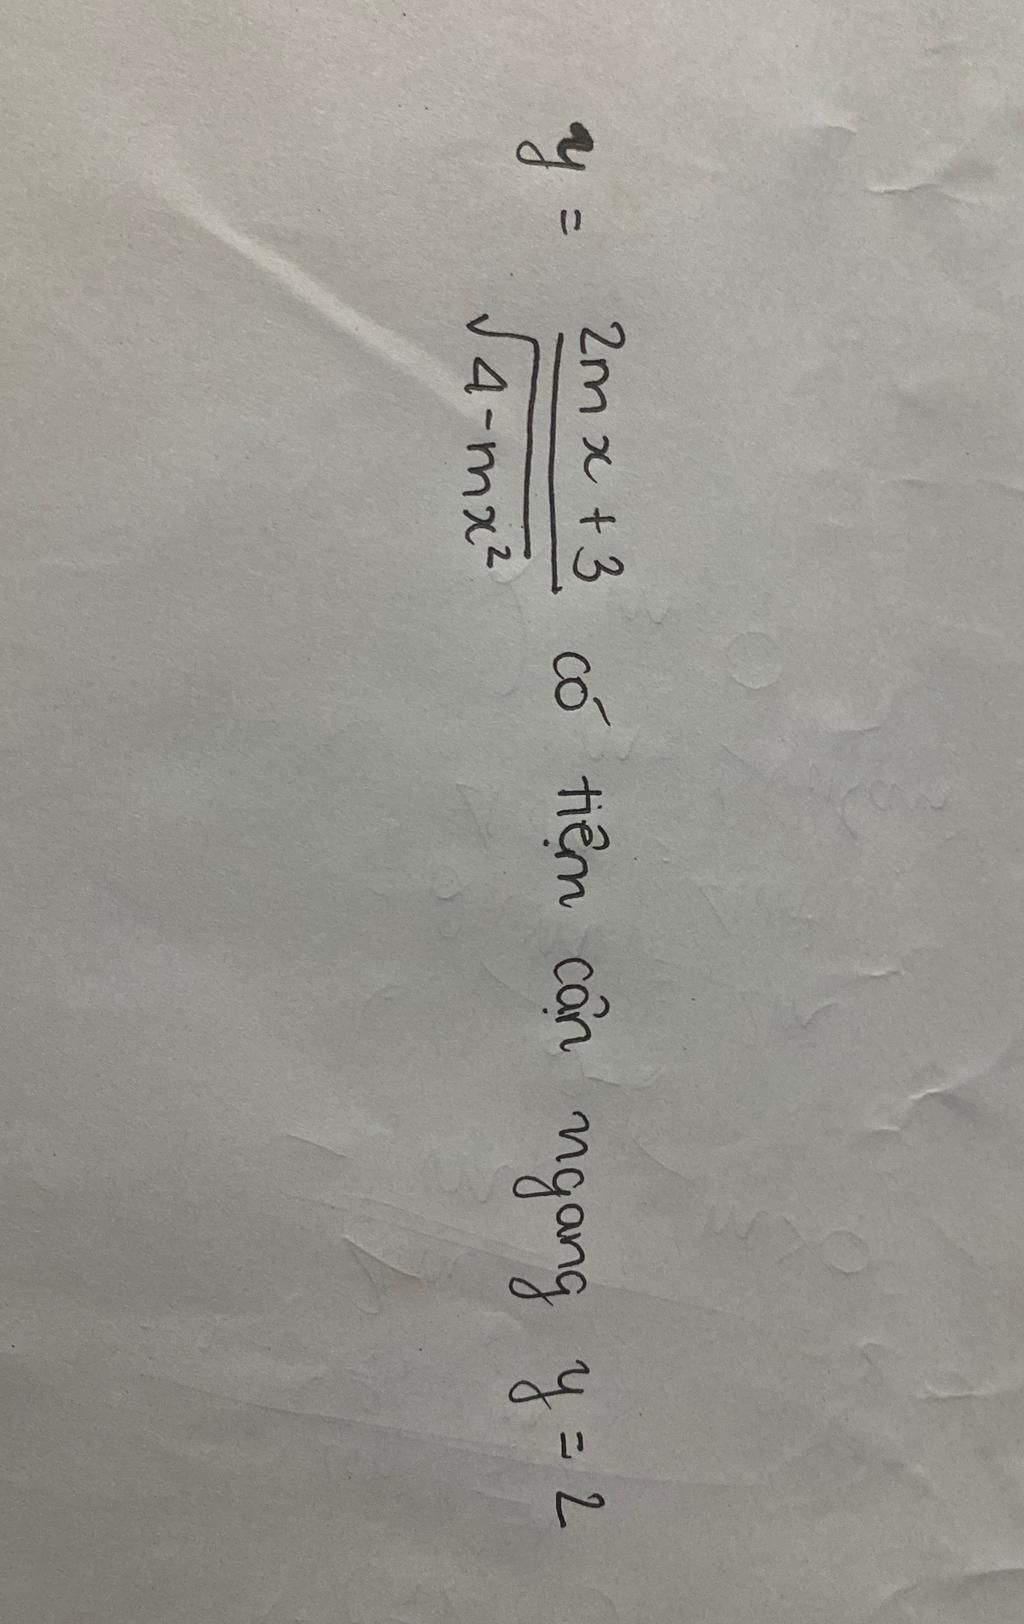 y = \frac{2mx+3}{\sqrt{4-mx^2}} có tiệm cận ngang y = 2